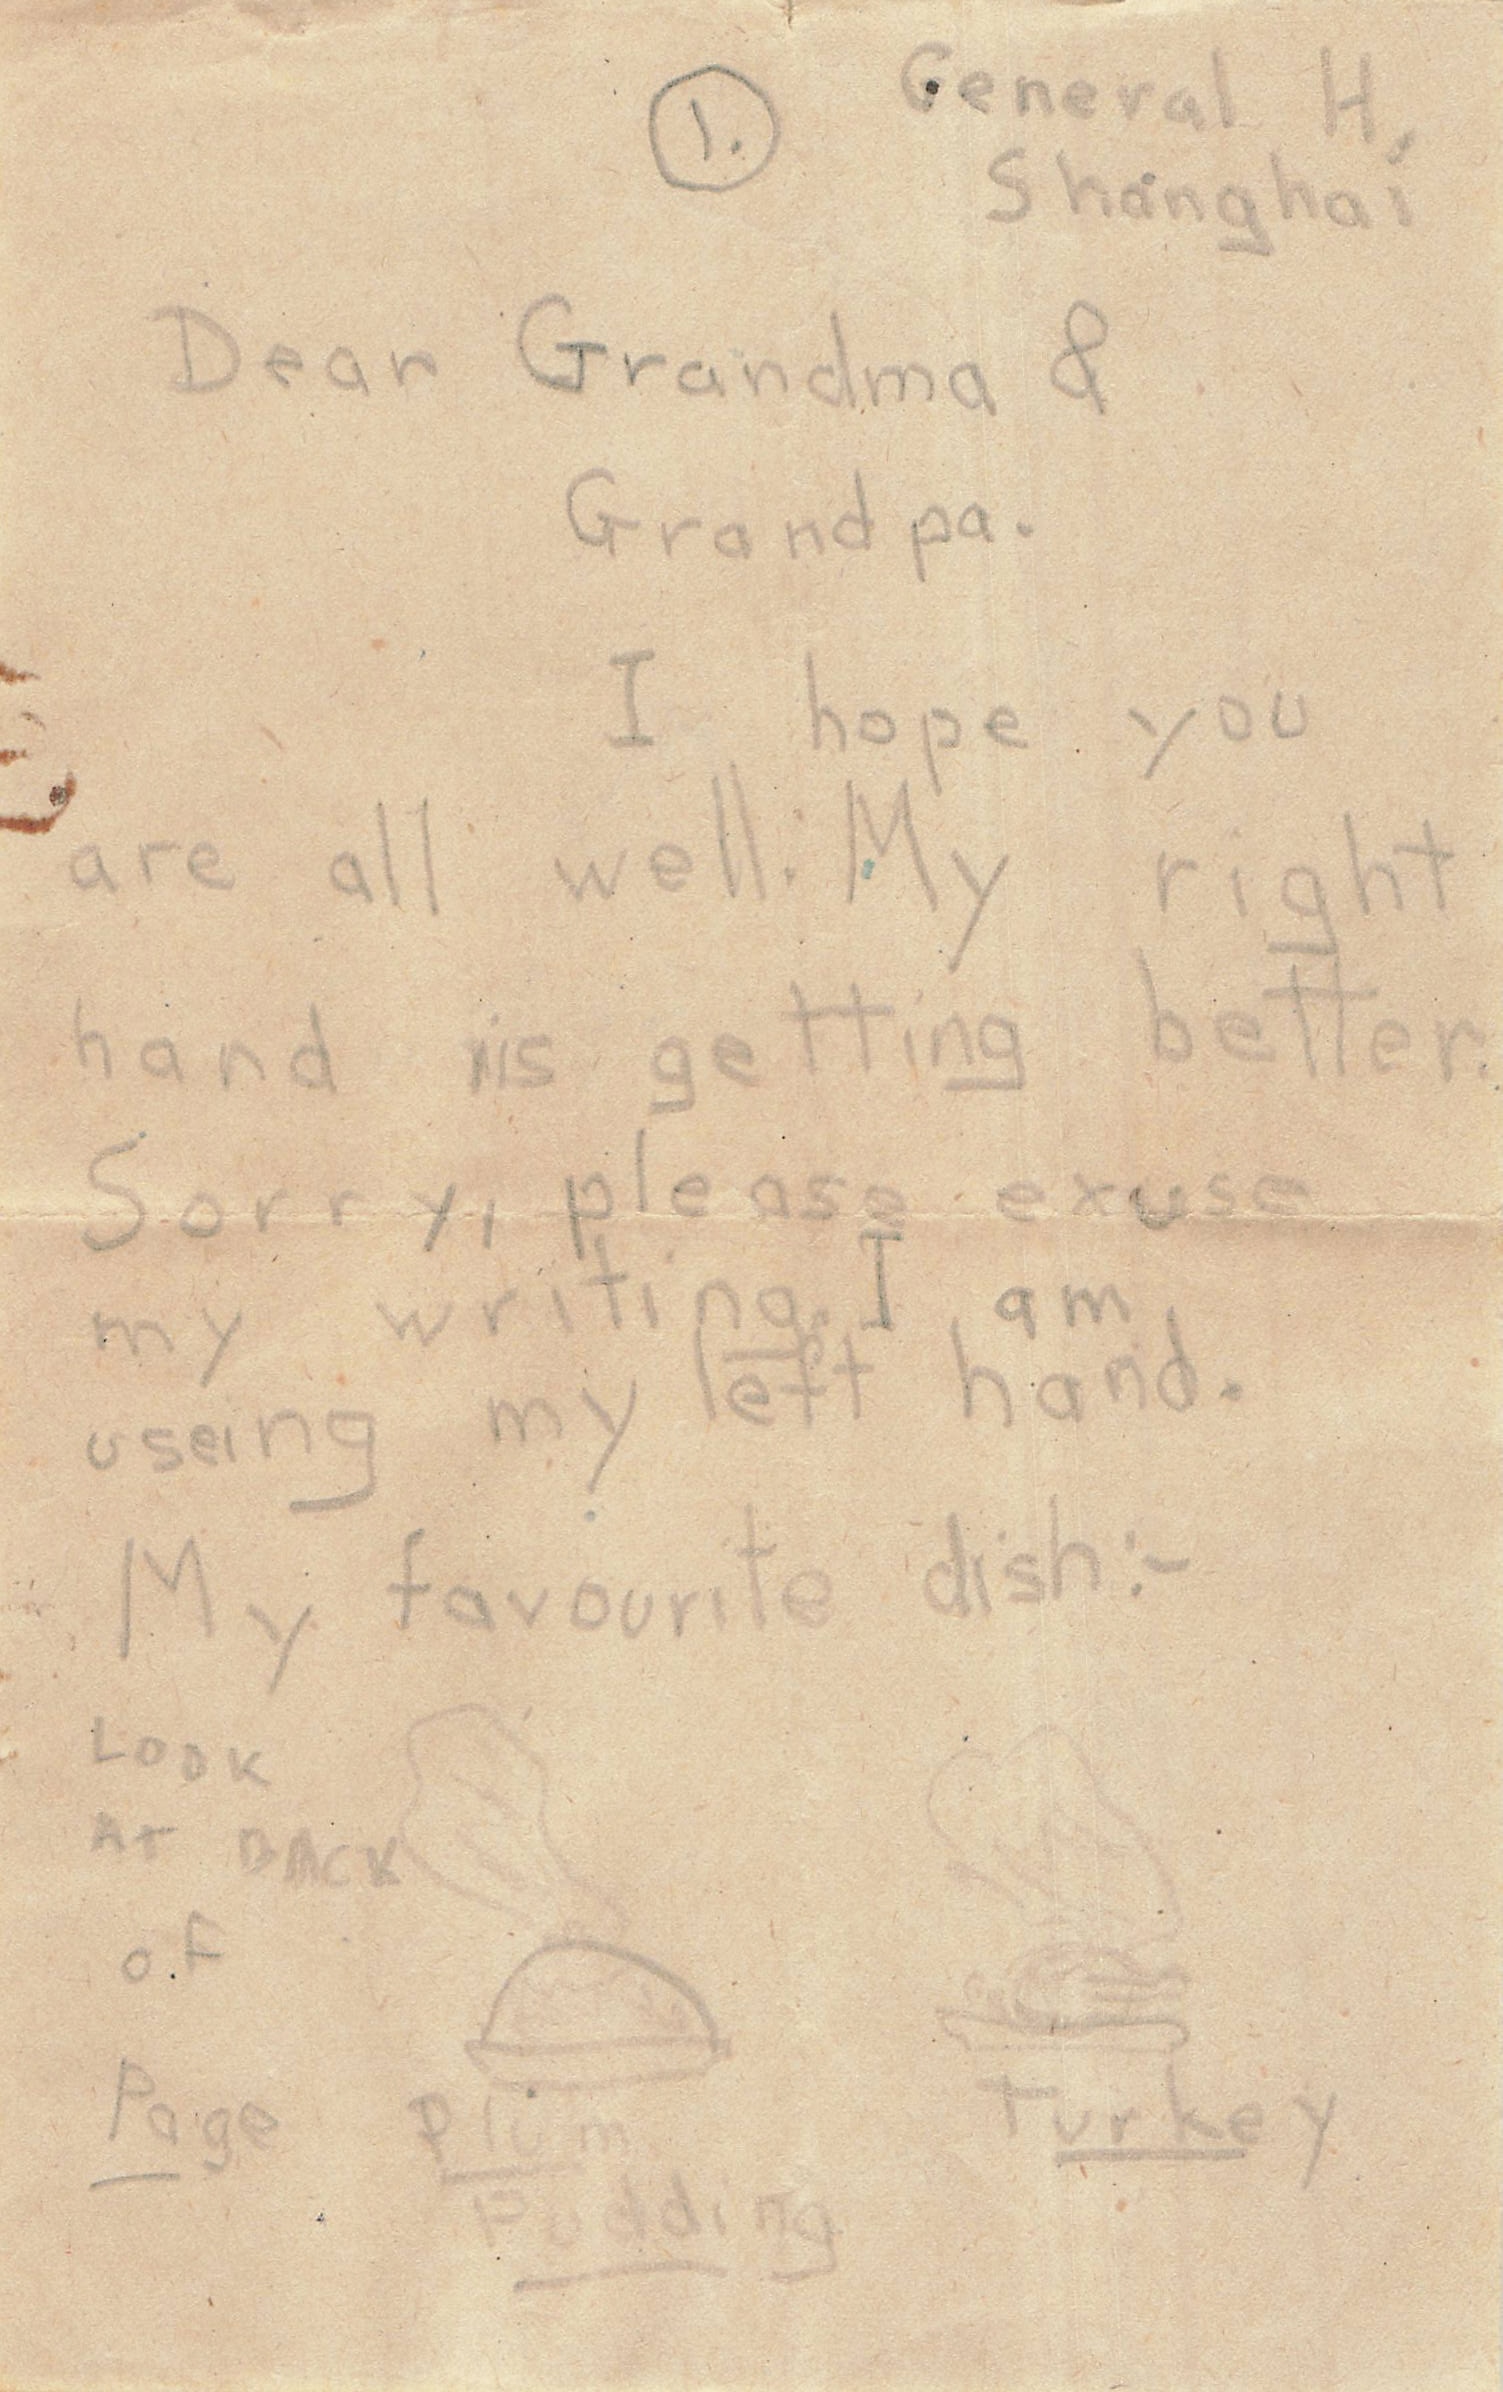 1. General H,
Shanghai
Dear Grandma &
Grandpa.
I hope you
are all well. My right
hand is getting better.
Sorry, please exuse
my writing. I am
useing my left hand.
My favourite dish:-
LOOK
AT BACK
of
Page
Plum
Pudding
Turkey